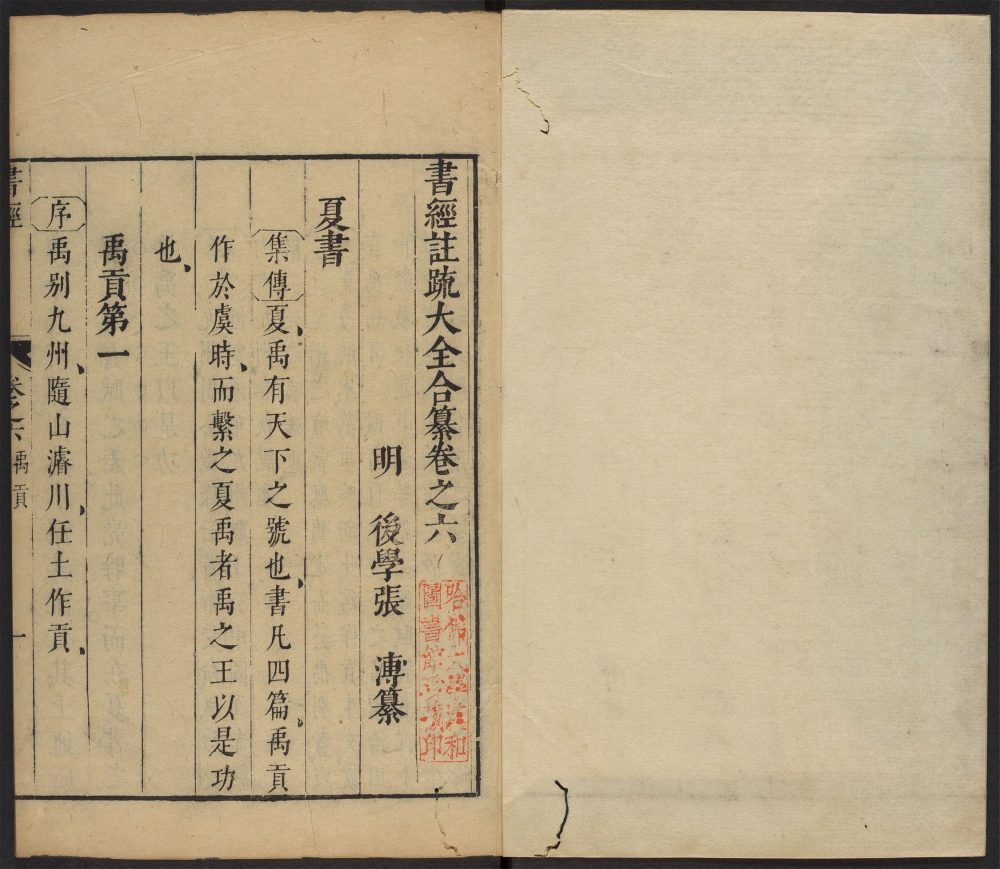 書經註疏大全合纂卷之六
哈佛大學漢和
圖書館珍藏印
明 後學張 溥纂
夏書
集傳夏、禹有天下之號也、書凡四篇、禹貢
作於虞時、而繫之夏禹者禹之王以是功
也、
禹貢第一
序禹别九州、隨山濬川、任土作貢、
書經 卷之六 禹貢 一